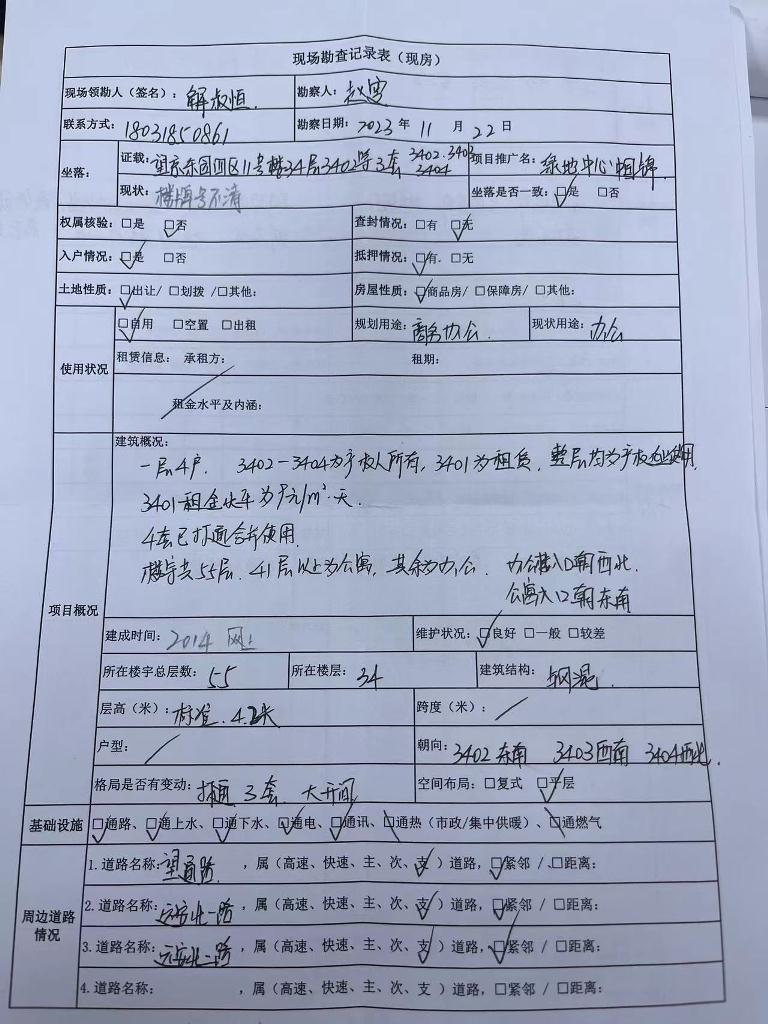 现场勘查记录表（现房）
现场领勘人（签名）：解叔恒 勘察人：赵
联系方式：18031850861 勘察日期：2023 年 11 月 22 日
坐落： 证载：望京东园四区11号楼34层3402等3套 3402.3403 3404 项目推广名：绿地中心中国锦
现状：楼牌号不清 坐落是否一致：☑是 □否
权属核验：□是 ☑否 查封情况：□有 ☑无
入户情况：☑是 □否 抵押情况：☑有. □无
土地性质：☑出让/ □划拨 /□其他： 房屋性质：☑商品房/ □保障房/ □其他：
使用状况 ☑自用 □空置 □出租 规划用途：商务办公. 现状用途：办公
租赁信息： 承租方： 租期：
租金水平及内涵：
项目概况 建筑概况：
一层4户. 3402-3404为产权人所有，3401为租赁，整层均为产权使用.
3401租金水平为5元/m²·天.
4套已打通合并使用.
楼宇共55层. 41层以上为公寓，其余为办公. 办公楼入口朝西北.
公寓入口朝东南
建成时间：2014 网上 维护状况：☑良好 □一般 □较差
所在楼宇总层数：55 所在楼层：34 建筑结构：钢混.
层高（米）：标准. 4.2米 跨度（米）：/
户型：/ 朝向：3402东南 3403西南 3404西北.
格局是否有变动：打通3套、大开间 空间布局：□复式 ☑平层
基础设施 ☑通路、☑通上水、☑通下水、☑通电、☑通讯、□通热（市政/集中供暖）、□通燃气
周边道路情况 1. 道路名称：望通路 ，属（高速、快速、主、次、支✓）道路，☑紧邻 / □距离：
2. 道路名称：远安北一路 ，属（高速、快速、主、次、支✓）道路，☑紧邻 / □距离：
3. 道路名称：远安北二路 ，属（高速、快速、主、次、支✓）道路，☑紧邻 / □距离：
4. 道路名称： ，属（高速、快速、主、次、支 ）道路，□紧邻 / □距离：